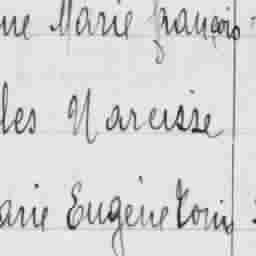 ne Marie François
les Narcisse
arie Eugène Louis